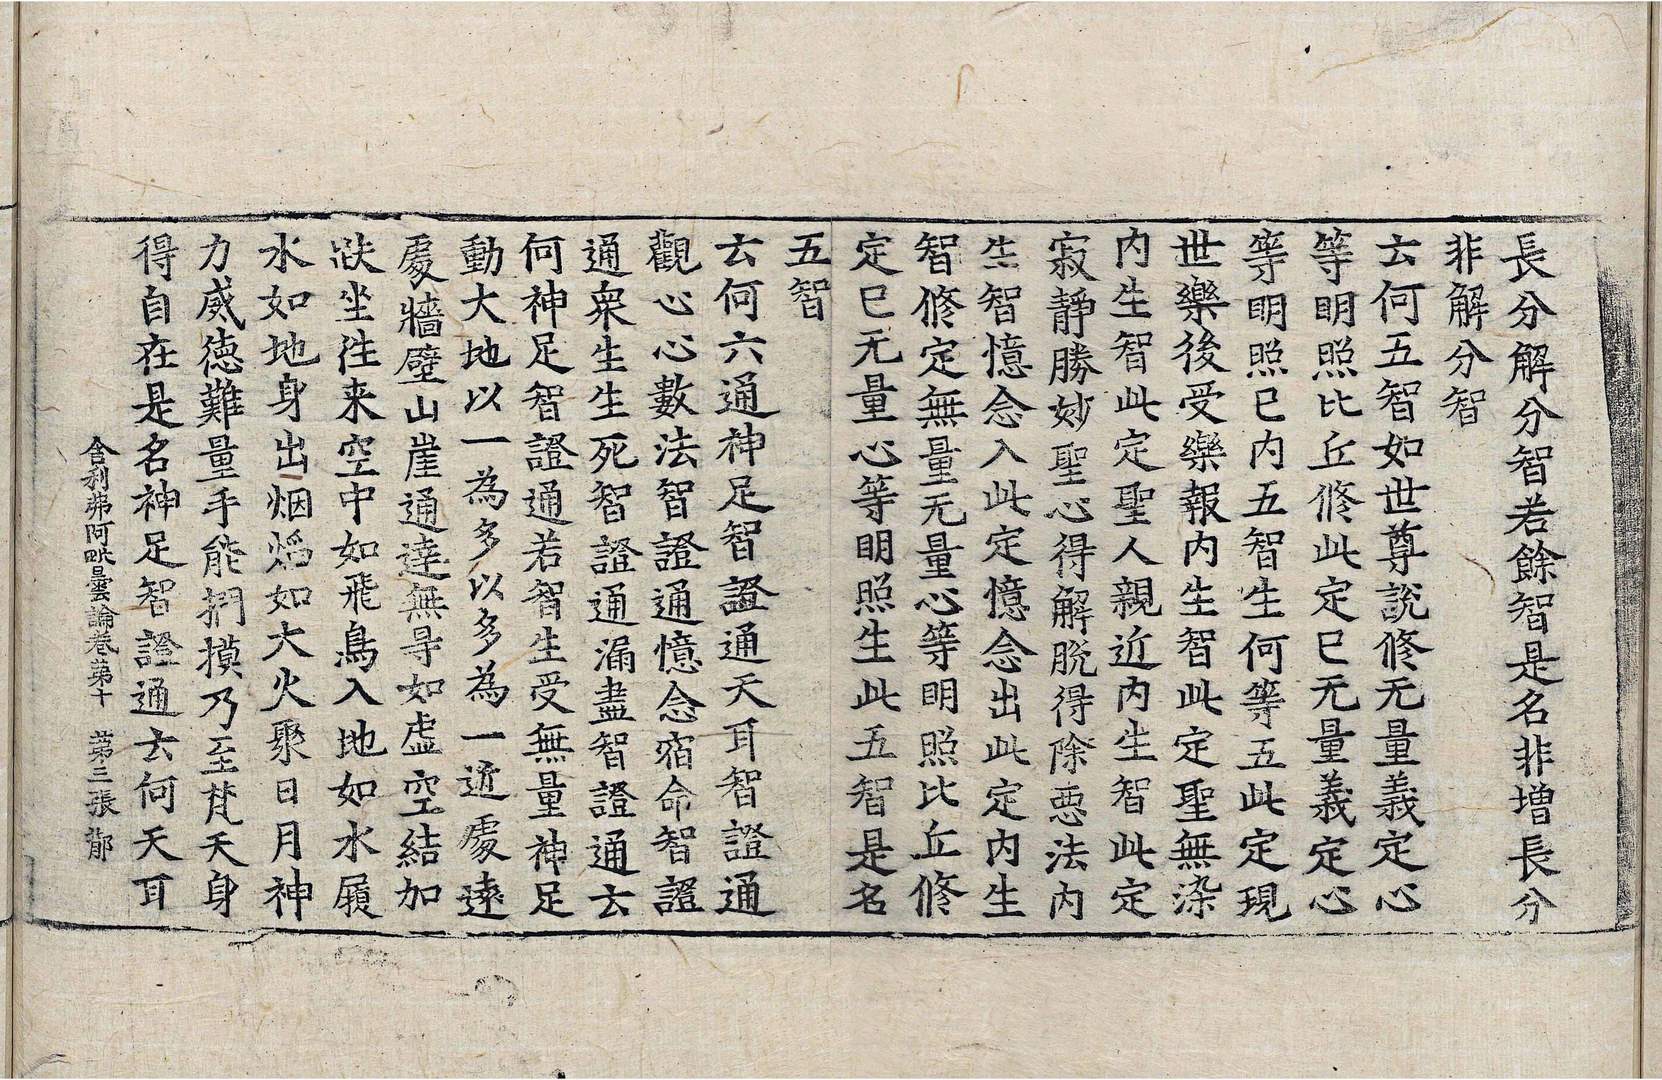 長分解分智若餘智是名非增長分
非解分智
云何五智如世尊說修无量義定心
等明照比丘修此定已无量義定心
等明照已内五智生何等五此定現
世樂後受樂報内生智此定聖無染
内生智此定聖人親近内生智此定
寂靜勝妙聖心得解脫得除惡法内
生智憶念入此定憶念出此定内生
智修定無量无量心等明照比丘修
定已无量心等明照生此五智是名
五智
云何六通神足智證通天耳智證通
觀心心數法智證通憶念宿命智證
通衆生生死智證通漏盡智證通云
何神足智證通若智生受無量神足
動大地以一為多以多為一近處遠
處牆壁山崖通達無导如虛空結加
趺坐往来空中如飛鳥入地如水履
水如地身出烟焰如大火聚日月神
力威德難量手能捫摸乃至梵天身
得自在是名神足智證通云何天耳
舍利弗阿毗曇論卷第十 第三張 鄁